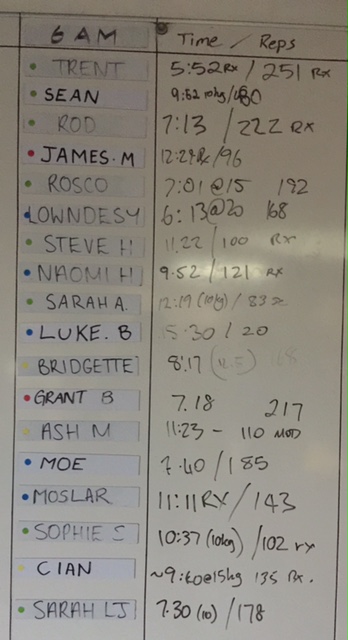 6 AM Time / Reps
TRENT 5:52 Rx / 251 Rx
SEAN 9:52 10kg/
ROD 7:13 / 222 Rx
JAMES. M 12:29 Rx/96
ROSCO 7:01 @15 192
LOWNDESY 6:13@20 168
STEVE H 11.22 / 100 Rx
NAOMI H 9.52 / 121 Rx
SARAH A. 12:19 (10kg) / 83
LUKE. B 15:30 / 20
BRIDGETTE 8:17 (12.5) 168
GRANT B 7.18 217
ASH M 11:23 - 110 MOD
MOE 7.40 / 185
MOSLAR 11:11 RX / 143
SOPHIE S 10:37 (10kg) / 102 rx
CIAN @15kg 135 Rx.
SARAH LJ 7.30 (10) / 178